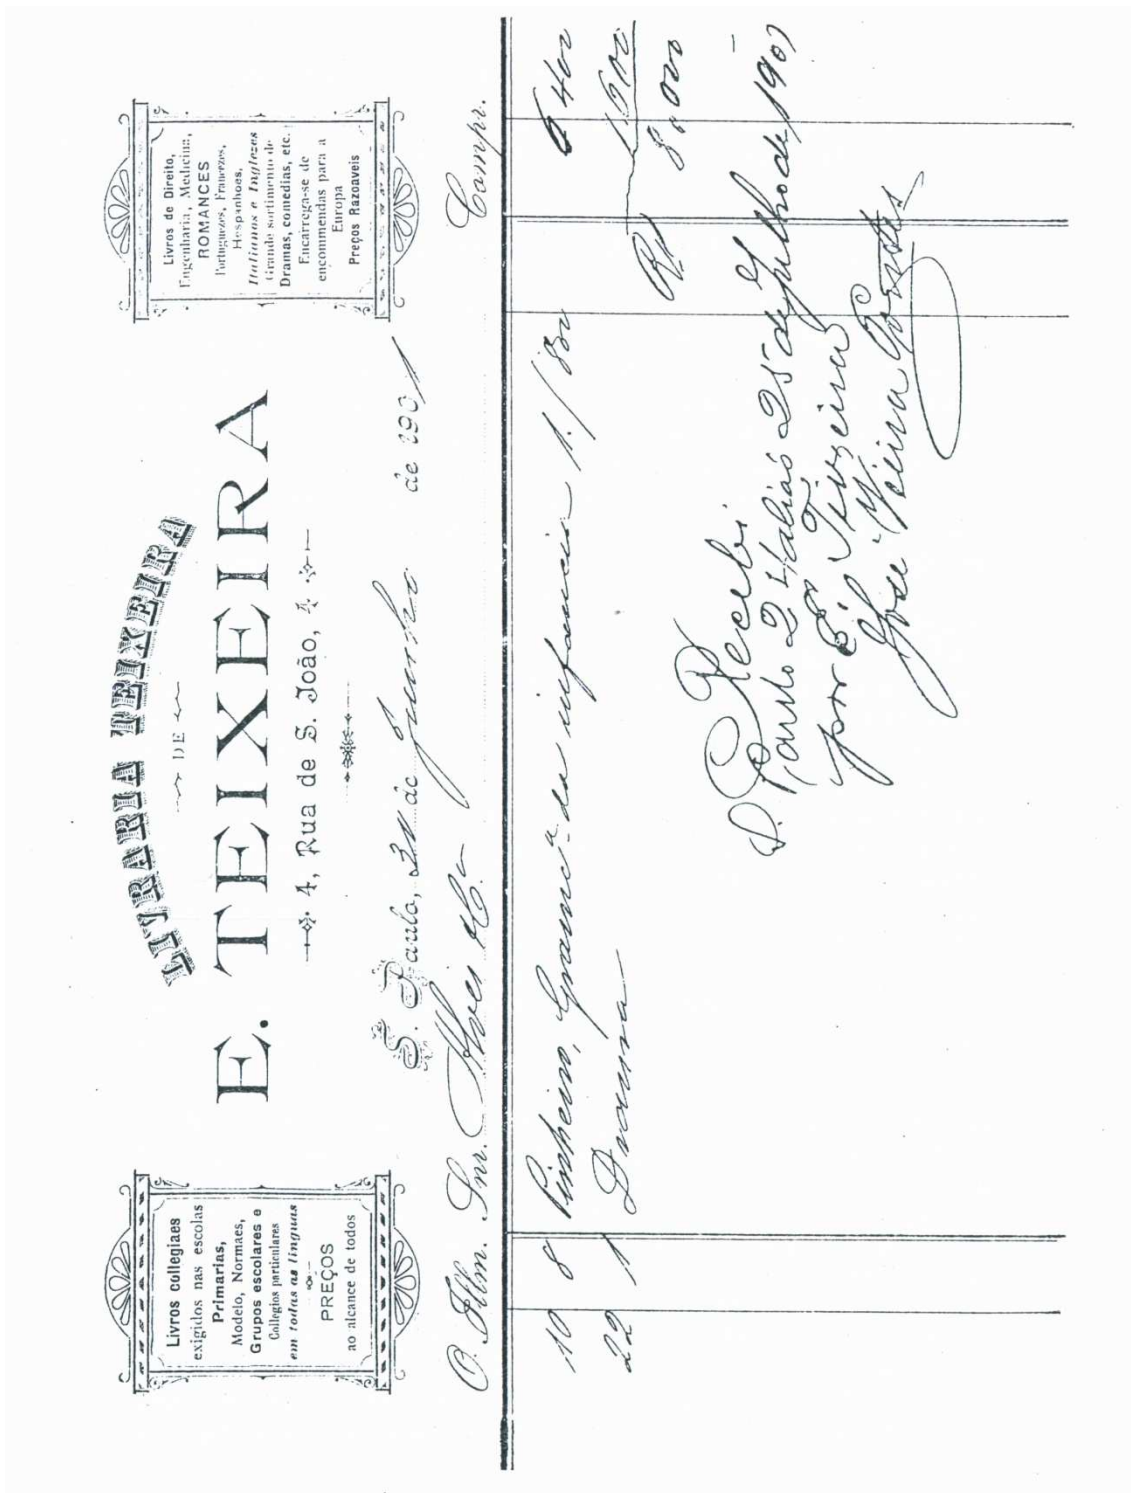 Livros collegiaes
exigidos nas escolas
Primarias,
Modelo, Normaes,
Grupos escolares e
Collegios particulares
em todas as linguas
PREÇOS
ao alcance de todos
LIVRARIA TEIXEIRA
DE
E. TEIXEIRA
4, Rua de S. João, 4
Livros de Direito,
Engenharia, Medicina,
ROMANCES
Portuguezes, Francezes,
Hespanhoes,
Italianos e Inglezes
Grande sortimento de
Dramas, comedias, etc.
Encarrega-se de
encommendas para a
Europa
Preços Razoaveis
S. Paulo, 30 de Junho de 1901
O Illm. Snr. Alves & Cª Compr.
10 8 Pinheiro, Grammca da infancia 1./800 6 400
22 1 Dnoima
Rs 8.000
Recebi
S. Paulo 25 de Julho de 1901
por E. Teixeira
José Vieira Pontes